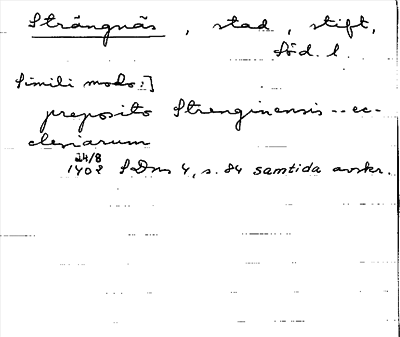 Strängnäs, stad, stift,
Söd. l.
Simili modo:]
preposito Strenginensis -- ec-
clesiarum
24/8
1408 SDns 4, s. 84 samtida avskr.